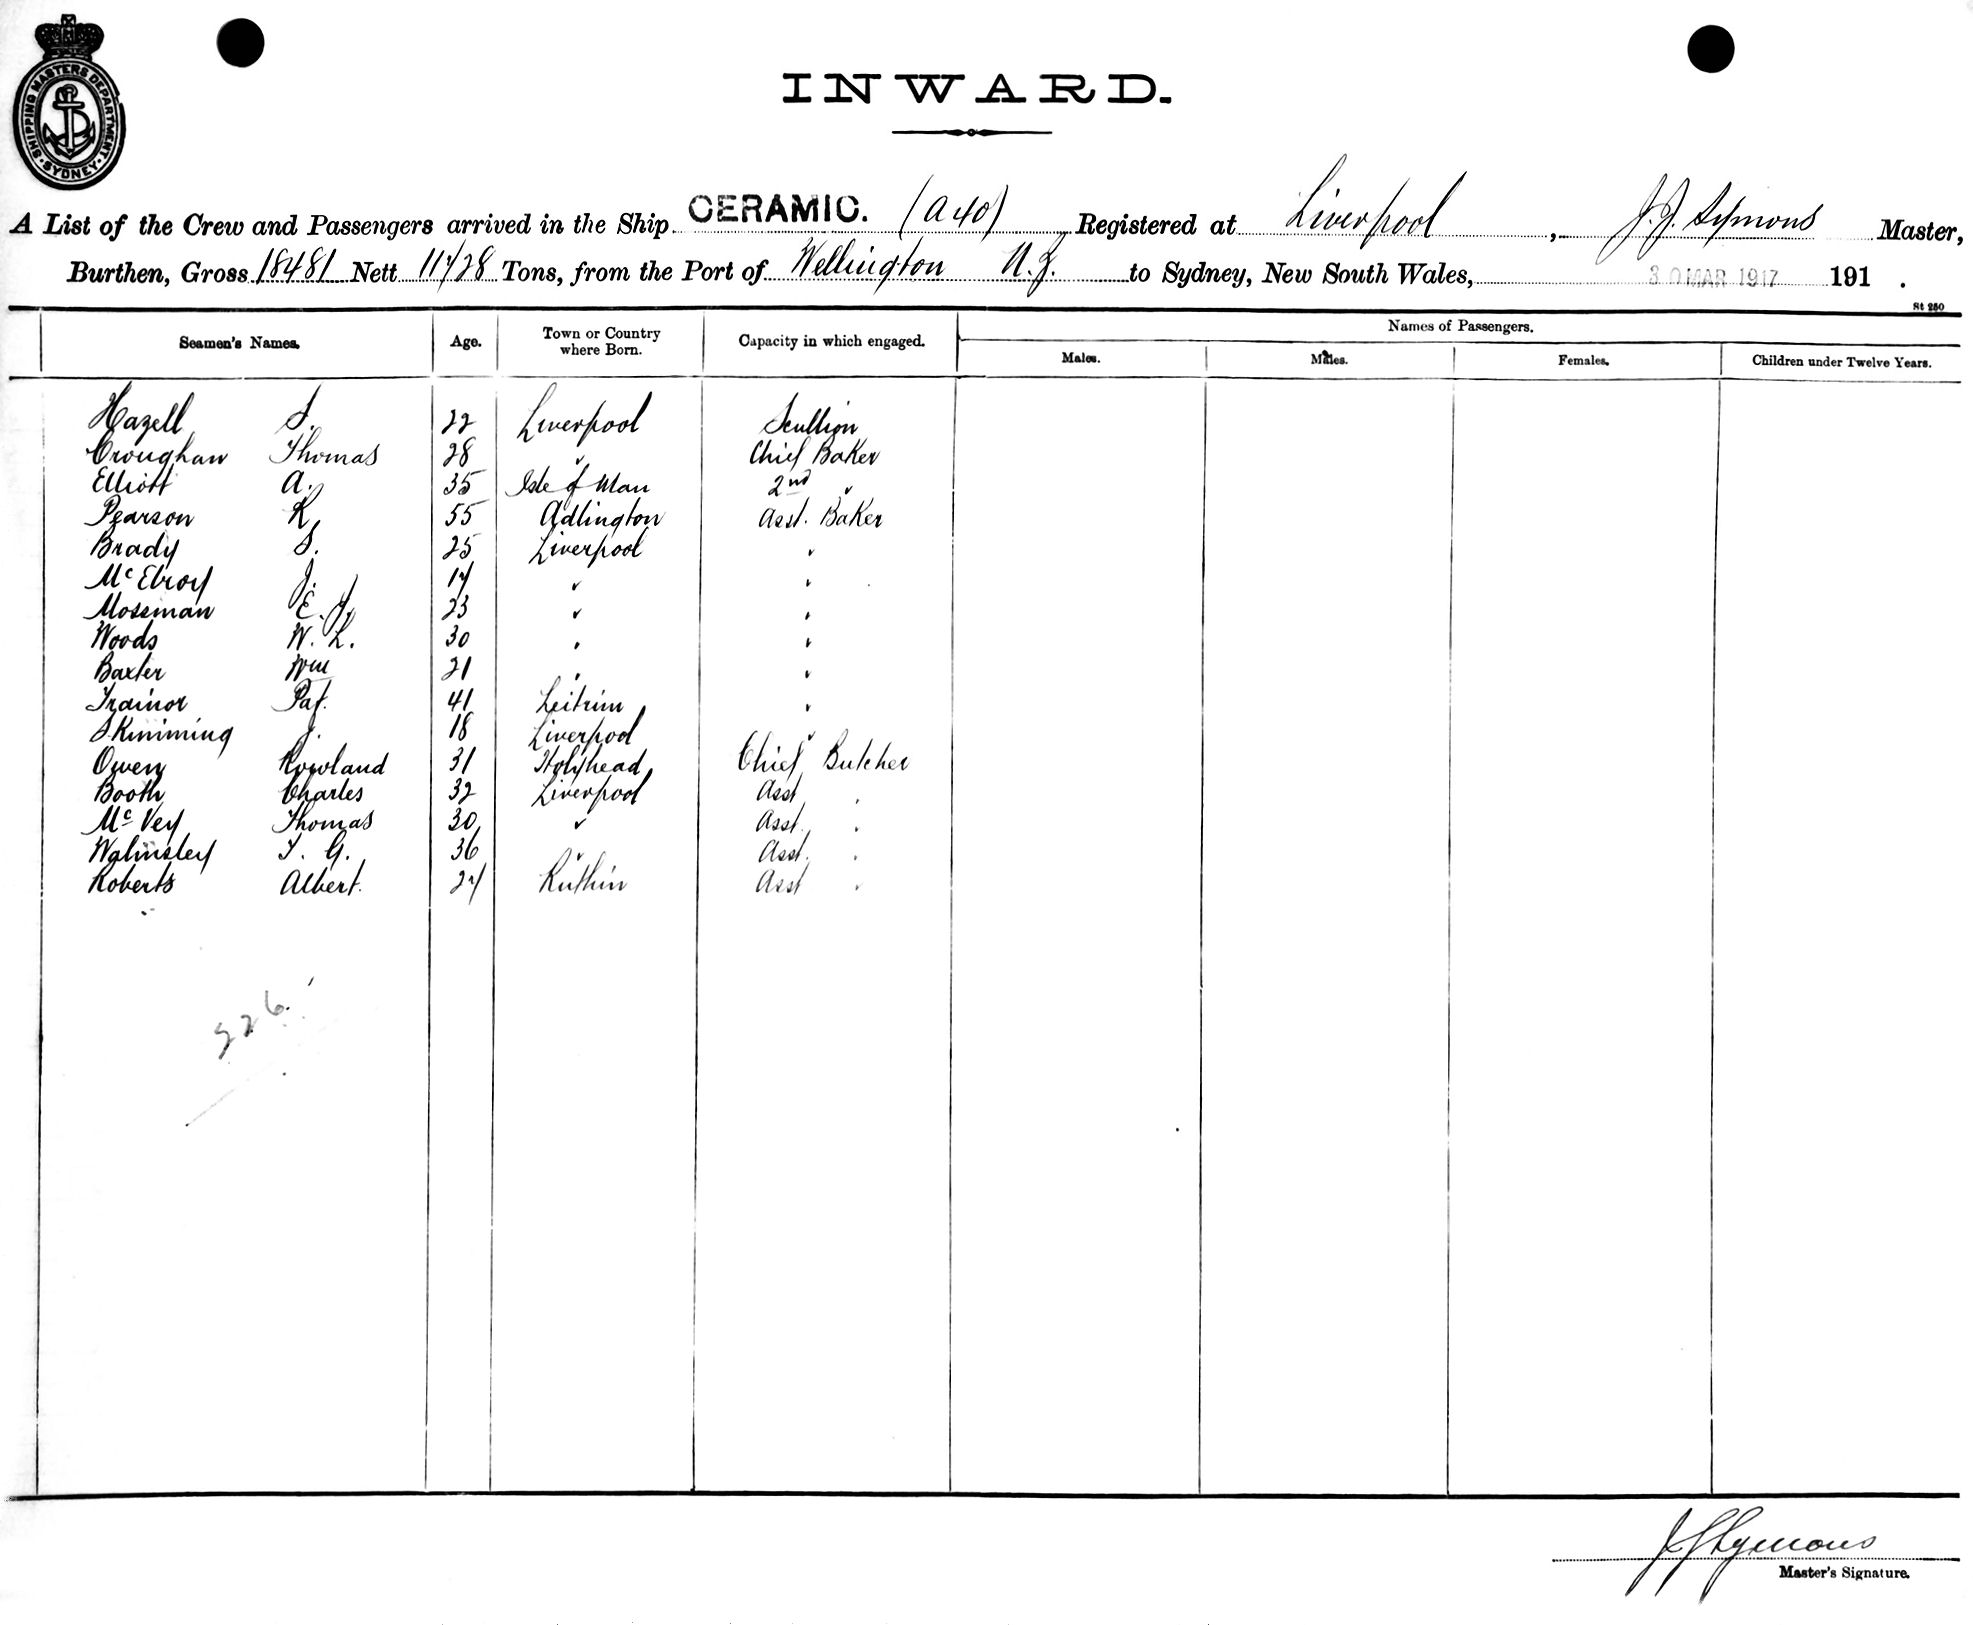 SHIPPING MASTERS DEPARTMENT · SYDNEY ·
INWARD.
A List of the Crew and Passengers arrived in the Ship CERAMIC. (A40) Registered at Liverpool, J. J. Symons Master,
Burthen, Gross 18481 Nett 11728 Tons, from the Port of Wellington N.Z. to Sydney, New South Wales, 30 MAR 1917 191 .
St 250
Seamen's Names. Age. Town or Country where Born. Capacity in which engaged. Names of Passengers.
Males. Males. Females. Children under Twelve Years.
Hazell S. 22 Liverpool Scullion
Croughan Thomas 28 " Chief Baker
Elliott A. 35 Isle of Man 2nd "
Pearson R. 55 Adlington Asst. Baker
Brady S. 25 Liverpool "
McElroy J. 17 " "
Mossman E. J. 23 " "
Woods W. L. 30 " "
Baxter Wm 21 " "
Trainor Pat. 41 Leitrim "
Skimming J. 18 Liverpool "
Owen Rowland 31 Holyhead Chief Butcher
Booth Charles 32 Liverpool Asst "
McVey Thomas 30 " Asst. "
Walmsley T. G. 36 " Asst. "
Roberts Albert. 27 Ruthin Asst "
326
J J Symons
Master's Signature.